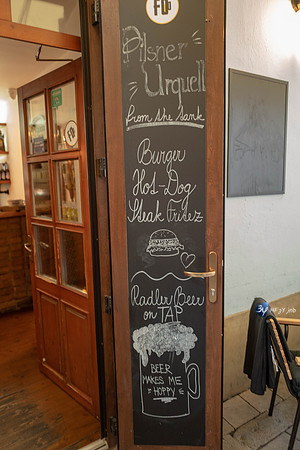 FD
Pilsner
Urquell
from the tank
Burger
Hot-Dog
Steak Fritez
Radler Beer
on TAP
BEER
MAKES ME
HOPPY